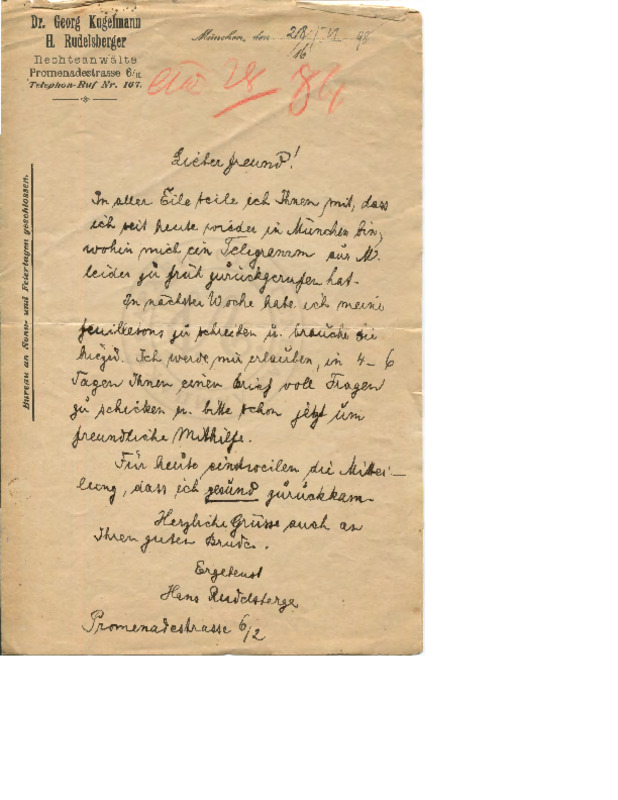 Dr. Georg Kugelmann
H. Rudelsberger
Rechtsanwälte
Promenadestrasse 6/II.
Telephon-Ruf Nr. 167.
München, den
Bureau an Sonn- und Feiertagen geschlossen.
Lieber Freund!
In aller Eile teile ich Ihnen mit, dass
ich seit heute wieder in München bin,
wohin mich ein Telegramm aus M.
leider zu früh zurückgerufen hat.
In nächster Woche habe ich meine
Feuilletons zu schreiben u. brauche Sie
hiezu. Ich werde mir erlauben, in 4–6
Tagen Ihnen einen Brief voll Fragen
zu schicken u. bitte schon jetzt um
freundliche Mithilfe.
Für heute einstweilen die Mittei-
lung, dass ich gesund zurückkam.
Herzliche Grüsse auch an
Ihren guten Bruder.
Ergebenst
Hans Rudelsberger
Promenadestrasse 6/2